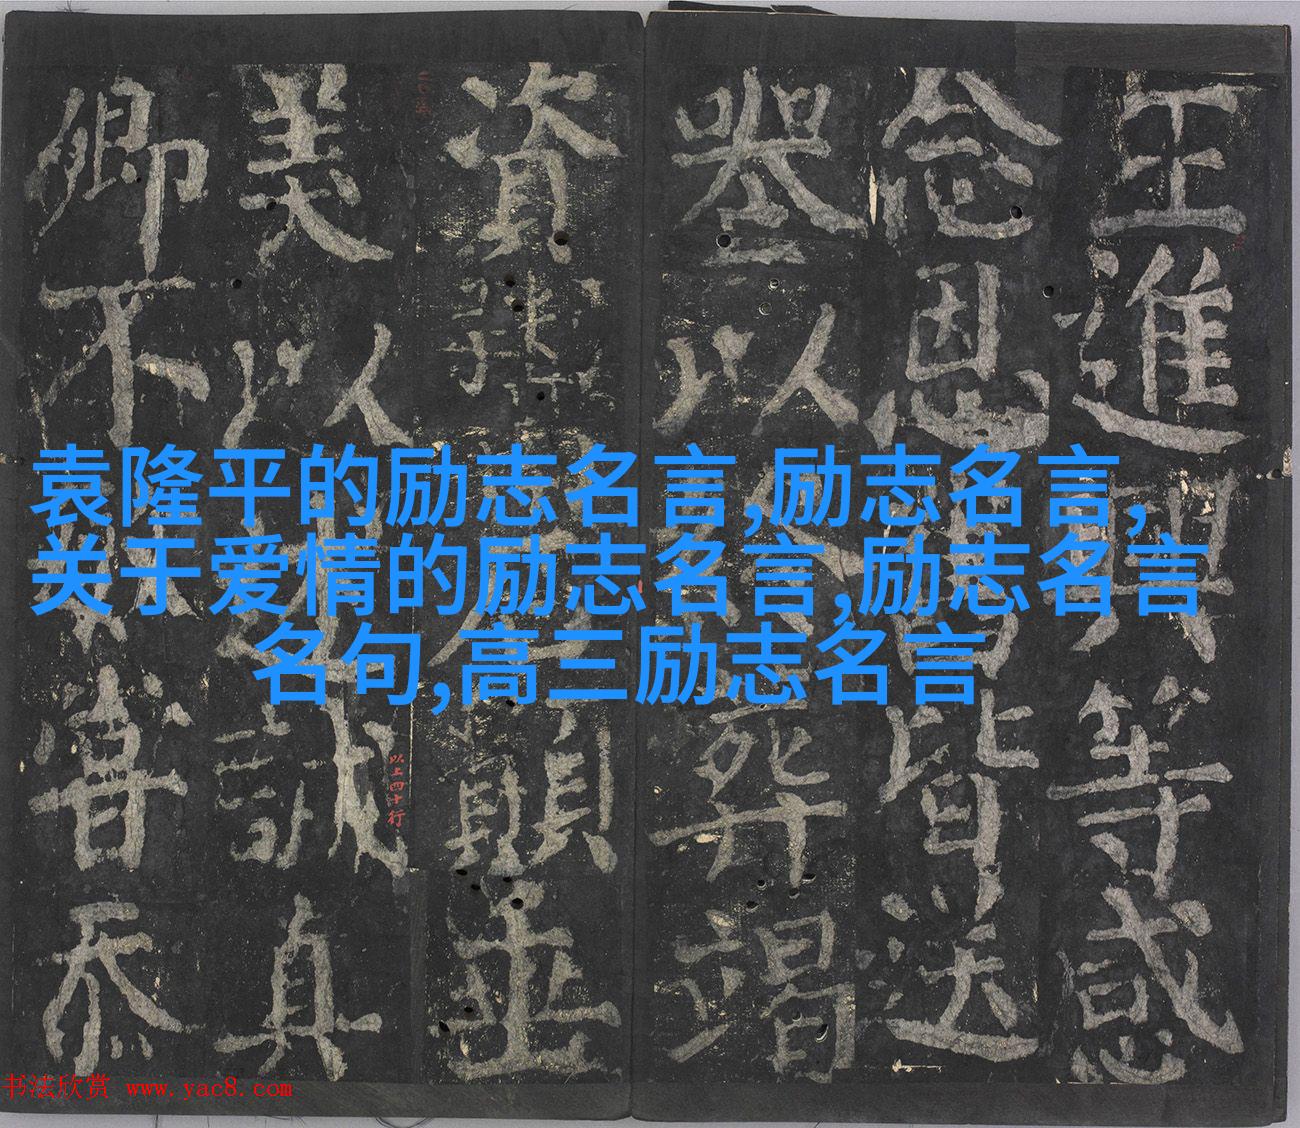 袁隆平的励志名言,励志名言,
关于爱情的励志名言,励志名言
名句,高三励志名言
王進興等感
念恩皆送
以葬竭
資顧並
美以誠真
卿不昔忝
以上四十行
书法欣赏 www.yac8.com